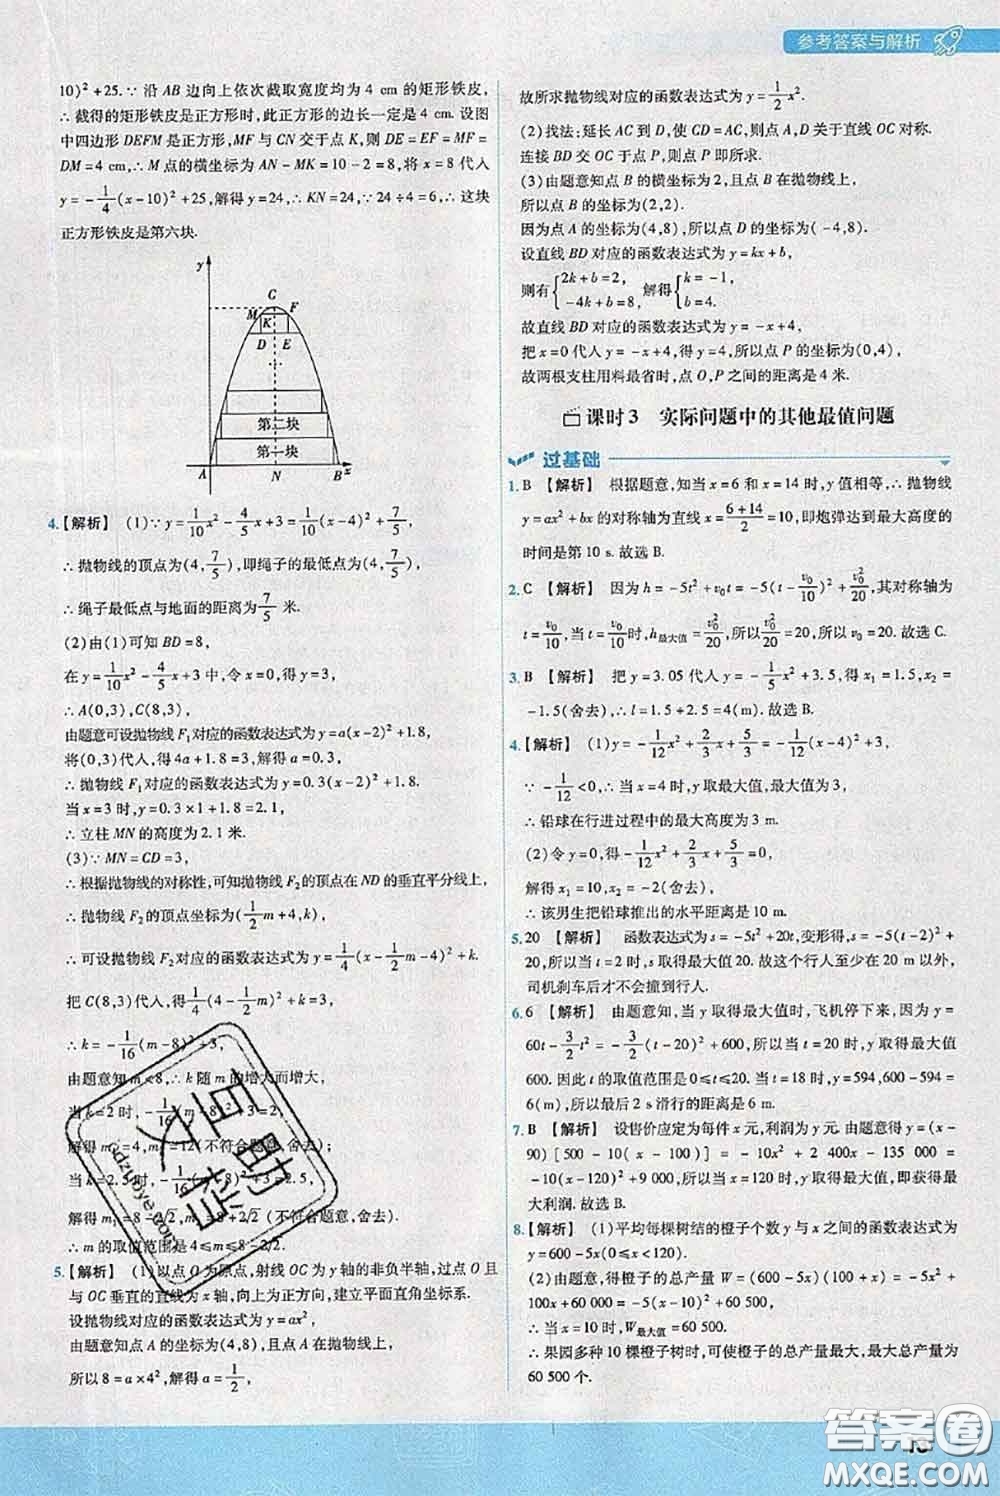 参考答案与解析
10)²+25.∵沿AB边向上依次截取宽度均为4 cm的矩形铁皮,
∴截得的矩形铁皮是正方形时,此正方形的边长一定是4 cm.设图
中四边形DEFM是正方形,MF与CN交于点K,则DE=EF=MF=
DM=4 cm,∴M点的横坐标为AN-MK=10-2=8,将x=8代入
y=-1/4(x-10)²+25,解得y=24,∴KN=24,∵24÷4=6,∴这块
正方形铁皮是第六块.
y
C
M F
K
D E
…
第二块
第一块
A N B x
4.【解析】 (1)∵y=1/10x²-4/5x+3=1/10(x-4)²+7/5,
∴抛物线的顶点为(4,7/5),即绳子的最低点为(4,7/5),
∴绳子最低点与地面的距离为7/5米.
(2)由(1)可知BD=8,
在y=1/10x²-4/5x+3中,令x=0,得y=3,
∴A(0,3),C(8,3),
由题意可设抛物线F₁对应的函数表达式为y=a(x-2)²+1.8,
将(0,3)代入,得4a+1.8=3,解得a=0.3,
∴抛物线F₁对应的函数表达式为y=0.3(x-2)²+1.8,
当x=3时,y=0.3×1+1.8=2.1,
∴立柱MN的高度为2.1米.
(3)∵MN=CD=3,
∴根据抛物线的对称性,可知抛物线F₂的顶点在ND的垂直平分线上,
∴抛物线F₂的顶点坐标为(1/2m+4,k),
∴可设抛物线F₂对应的函数表达式为y=1/4(x-1/2m-4)²+k.
把C(8,3)代入,得1/4(4-1/2m)²+k=3,
∴k=-1/16(m-8)²+3,
由题意知m<8,∴k随m的增大而增大,
当k=2时,-1/16(m-8)²+3=2,
解得m₁=4,m₂=12(不符合题意,舍去);
当k=2.5时,-1/16(m-8)²+3=2.5,
解得m₁=8-2√2,m₂=8+2√2(不符合题意,舍去).
∴m的取值范围是4≤m≤8-2√2.
5.【解析】 (1)以点O为原点,射线OC为y轴的非负半轴,过点O且
与OC垂直的直线为x轴,向上为正方向,建立平面直角坐标系.
设抛物线对应的函数表达式为y=ax²,
由题意知点A的坐标为(4,8),且点A在抛物线上,
所以8=a×4²,解得a=1/2,
故所求抛物线对应的函数表达式为y=1/2x².
(2)找法:延长AC到D,使CD=AC,则点A,D关于直线OC对称.
连接BD交OC于点P,则点P即所求.
(3)由题意知点B的横坐标为2,且点B在抛物线上,
所以点B的坐标为(2,2).
因为点A的坐标为(4,8),所以点D的坐标为(-4,8).
设直线BD对应的函数表达式为y=kx+b,
则有{2k+b=2, -4k+b=8, 解得{k=-1, b=4.
故直线BD对应的函数表达式为y=-x+4,
把x=0代入y=-x+4,得y=4,所以点P的坐标为(0,4),
故两根支柱用料最省时,点O,P之间的距离是4米.
课时3 实际问题中的其他最值问题
过基础
1.B 【解析】 根据题意,知当x=6和x=14时,y值相等,∴抛物线
y=ax²+bx的对称轴为直线x=(6+14)/2=10,即炮弹达到最大高度的
时间是第10 s.故选B.
2.C 【解析】 因为h=-5t²+v₀t=-5(t-v₀/10)²+v₀²/20,其对称轴为
t=v₀/10,当t=v₀/10时,h最大值=v₀²/20,所以v₀²/20=20,所以v₀=20.故选C.
3.B 【解析】 把y=3.05代入y=-1/5x²+3.5,得x₁=1.5,x₂=
-1.5(舍去),∴l=1.5+2.5=4(m).故选B.
4.【解析】 (1)y=-1/12x²+2/3x+5/3=-1/12(x-4)²+3,
∵-1/12<0,∴当x=4时,y取最大值,最大值为3,
∴铅球在行进过程中的最大高度为3 m.
(2)令y=0,得-1/12x²+2/3x+5/3=0,
解得x₁=10,x₂=-2(舍去),
∴该男生把铅球推出的水平距离是10 m.
5.20 【解析】 函数表达式为s=-5t²+20t,变形得,s=-5(t-2)²+
20,所以当t=2时,s取得最大值20.故这个行人至少在20 m以外,
司机刹车后才不会撞到行人.
6.6 【解析】 由题意知,当y取得最大值时,飞机停下来,因为y=
60t-3/2t²=-3/2(t-20)²+600,所以当t=20时,y取得最大值
600.因此t的取值范围是0≤t≤20.当t=18时,y=594,600-594=
6(m),所以最后2 s滑行的距离是6 m.
7.B 【解析】 设售价应定为每件x元,利润为y元.由题意得y=(x-
90)[500-10(x-100)]=-10x²+2 400x-135 000=
-10(x-120)²+9 000,所以当x=120时,y有最大值,即获得最
大利润.故选B.
8.【解析】 (1)平均每棵树结的橙子个数y与x之间的函数表达式为
y=600-5x(0≤x<120).
(2)由题意,得橙子的总产量W=(600-5x)(100+x)=-5x²+
100x+60 000=-5(x-10)²+60 500,
∴当x=10时,W最大值=60 500.
∴果园多种10棵橙子树时,可使橙子的总产量最大,最大总产量为
60 500个.
答案圈
MXQE.COM